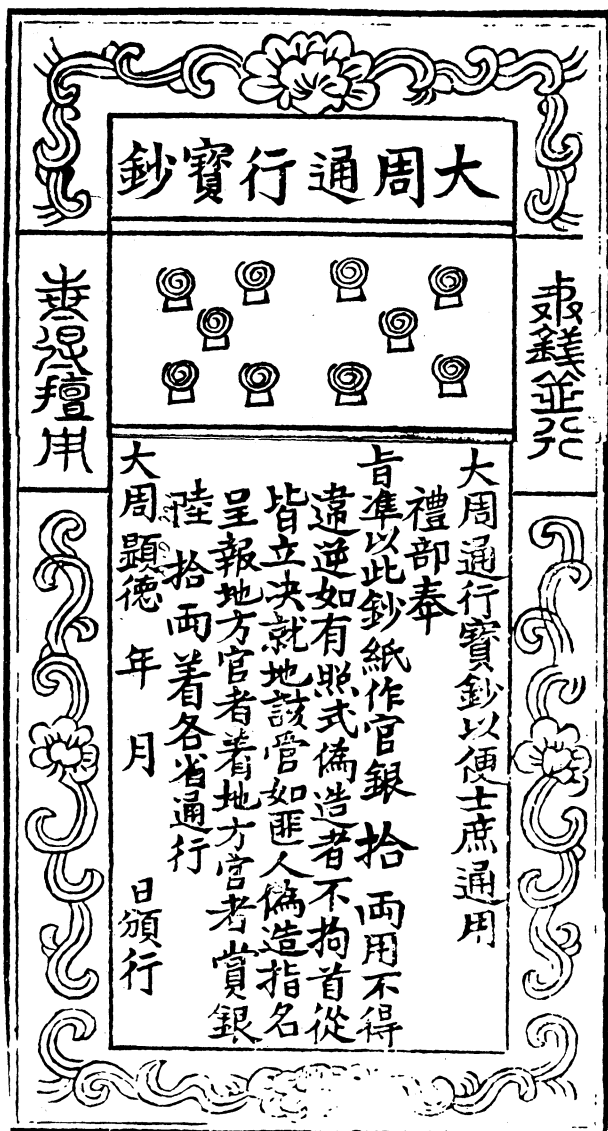 大周通行寶鈔
錢並行
擅用
大周通行寶鈔以便士庶通用
禮部奉
旨準以此鈔紙作官銀拾両用不得
違逆如有照式偽造者不拘首從
皆立决就地該管如匪人偽造指名
呈報地方官者着地方官者賞銀
陸拾両着各省通行
大周顯德 年 月 日頒行